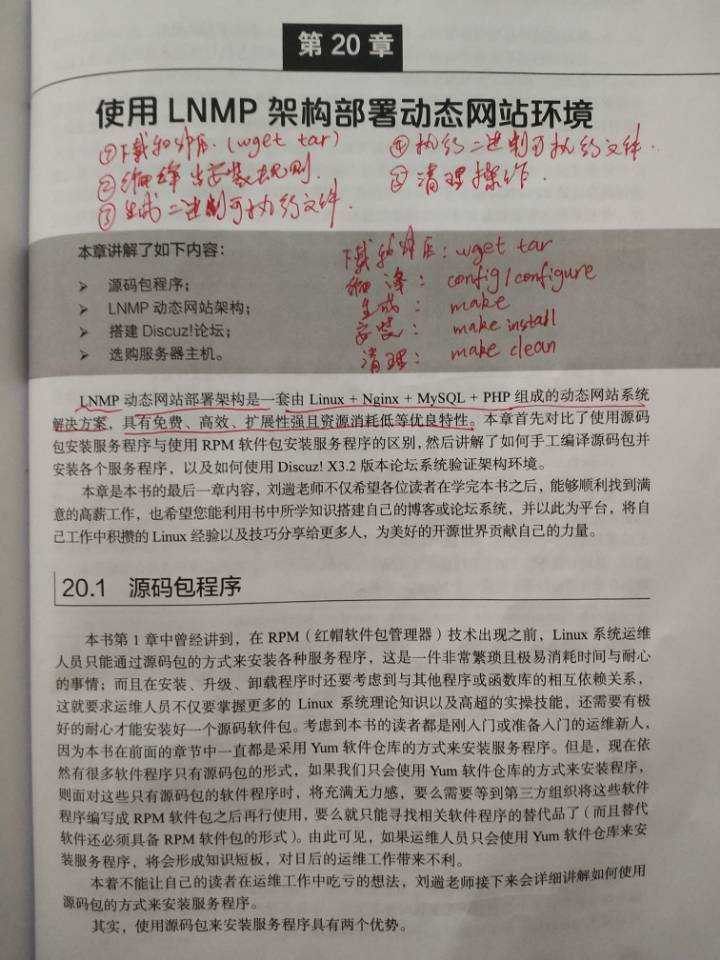 第 20 章
使用 LNMP 架构部署动态网站环境
①下载和解压.(wget tar)
④执行二进制可执行文件.
②编译安装规则.
⑤清理操作.
③生成二进制可执行文件.
本章讲解了如下内容：
➢ 源码包程序；
➢ LNMP 动态网站架构；
➢ 搭建 Discuz!论坛；
➢ 选购服务器主机。
下载和解压：wget tar
编译：config/configure
生成：make
安装：make install
清理：make clean
LNMP 动态网站部署架构是一套由 Linux + Nginx + MySQL + PHP 组成的动态网站系统
解决方案，具有免费、高效、扩展性强且资源消耗低等优良特性。本章首先对比了使用源码
包安装服务程序与使用 RPM 软件包安装服务程序的区别，然后讲解了如何手工编译源码包并
安装各个服务程序，以及如何使用 Discuz! X3.2 版本论坛系统验证架构环境。
本章是本书的最后一章内容，刘遄老师不仅希望各位读者在学完本书之后，能够顺利找到满
意的高薪工作，也希望您能利用书中所学知识搭建自己的博客或论坛系统，并以此为平台，将自
己工作中积攒的 Linux 经验以及技巧分享给更多人，为美好的开源世界贡献自己的力量。
20.1 源码包程序
本书第 1 章中曾经讲到，在 RPM（红帽软件包管理器）技术出现之前，Linux 系统运维
人员只能通过源码包的方式来安装各种服务程序，这是一件非常繁琐且极易消耗时间与耐心
的事情；而且在安装、升级、卸载程序时还要考虑到与其他程序或函数库的相互依赖关系，
这就要求运维人员不仅要掌握更多的 Linux 系统理论知识以及高超的实操技能，还需要有极
好的耐心才能安装好一个源码软件包。考虑到本书的读者都是刚入门或准备入门的运维新人，
因为本书在前面的章节中一直都是采用 Yum 软件仓库的方式来安装服务程序。但是，现在依
然有很多软件程序只有源码包的形式，如果我们只会使用 Yum 软件仓库的方式来安装程序，
则面对这些只有源码包的软件程序时，将充满无力感，要么需要等到第三方组织将这些软件
程序编写成 RPM 软件包之后再行使用，要么就只能寻找相关软件程序的替代品了（而且替代
软件还必须具备 RPM 软件包的形式）。由此可见，如果运维人员只会使用 Yum 软件仓库来安
装服务程序，将会形成知识短板，对日后的运维工作带来不利。
本着不能让自己的读者在运维工作中吃亏的想法，刘遄老师接下来会详细讲解如何使用
源码包的方式来安装服务程序。
其实，使用源码包来安装服务程序具有两个优势。